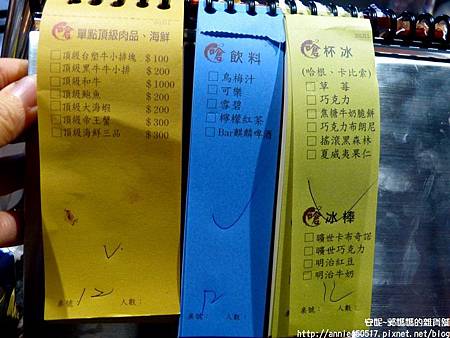 嗆 單點頂級肉品、海鮮
□頂級台塑牛小排塊 $100
□頂級黑牛牛小排 $200
□頂級和牛 $1000
□頂級鮑魚 $200
□頂級大海蝦 $200
□頂級帝王蟹 $300
□頂級海鮮三品 $300
V
桌號:12 人數:
嗆 飲料
□烏梅汁
□可樂
□雪碧
□檸檬紅茶
□Bar麒麟啤酒
12
嗆 杯冰
(哈根、卡比索)
□草莓
□巧克力
□焦糖牛奶脆餅
□巧克力布朗尼
□搖滾黑森林
□夏威夷果仁
嗆 冰棒
□曠世卡布奇諾
□曠世巧克力
□明治紅豆
□明治牛奶
12
桌號: 人數:
安妮~郭媽媽的雜貨舖
http://annie650517.pixnet.net/blog